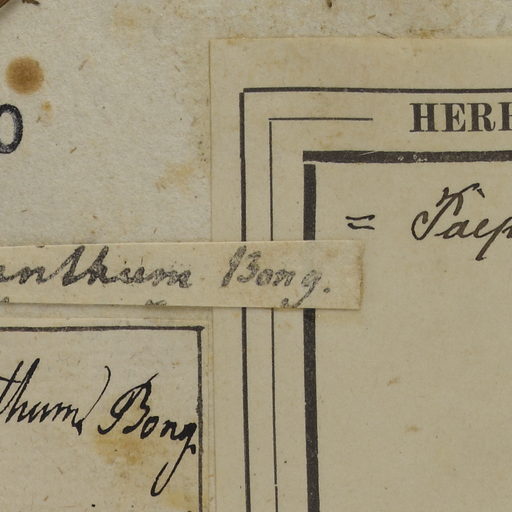 HERB
0
= Paep
anthum Bong.
thum Bong.